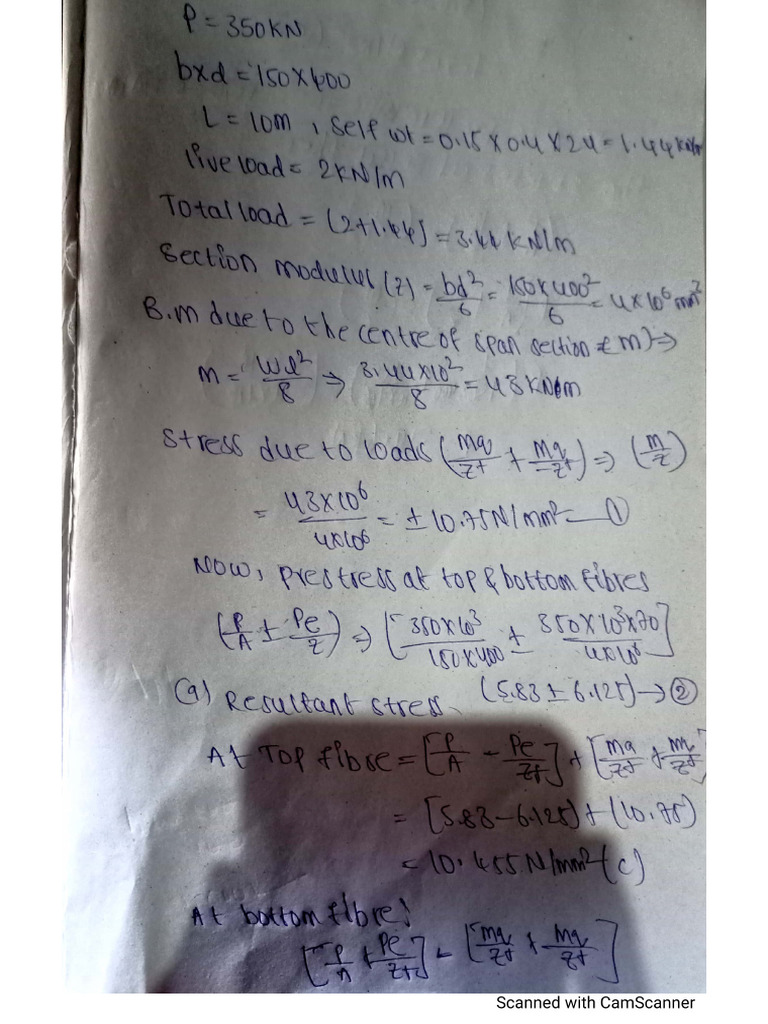 P = 350KN
bxd = 150X400
L = 10m, Self wt = 0.15 X 0.4 X 24 = 1.44 KN/m
live load = 2KN/m
Total load = (2+1.44) = 3.44 KN/m
Section modulus (Z) = bd²/6 = 150X400²/6 = 4X10⁶ mm³
B.m due to the centre of span section (m) ⇒
m = Wl²/8 ⇒ 3.44X10²/8 = 43 KN/m
Stress due to loads (Mq/Zt + Mq/Zt) ⇒ (m/z)
= 43X10⁶/4X10⁶ = ± 10.75N/mm² — ①
Now, prestress at top & bottom fibres
(P/A ± Pe/Z) ⇒ [350X10³/150X400 ± 350X10³X70/4X10⁶]
(5.83 ± 6.125) → ②
(a) Resultant stress.
At Top fibre = [P/A - Pe/Zt] + [Mq/Zt + Mq/Zt]
= [5.83-6.125) + (10.75)
= 10.455 N/mm² (c)
At bottom fibre:
[P/A + Pe/Zt] - [Mq/Zt + Mq/Zt]
Scanned with CamScanner